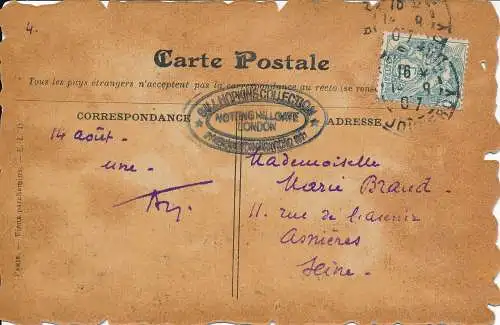 4.
Carte Postale
Tous les pays étrangers n'acceptent pas la correspondance au recto (se
CORRESPONDANCE
ADRESSE
BILL HOPKINS COLLECTION
NOTTING HILL GATE
LONDON
16
9
07
16
9
07
14 août.
une
Mademoiselle
Marie Braud
11 rue de l'avenir
Asnières
Seine.